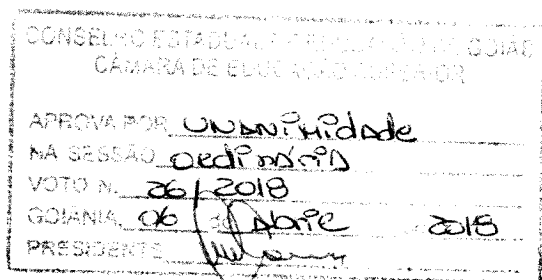 CONSELHO ESTADUAL DE EDUCAÇÃO DE GOIÁS
CÂMARA DE EDUCAÇÃO SUPERIOR
APROVA POR UNANIMIDADE
NA SESSÃO ORDINÁRIA
VOTO N. 26/2018
GOIÂNIA, 06 de Abril 2018
PRESIDENTE